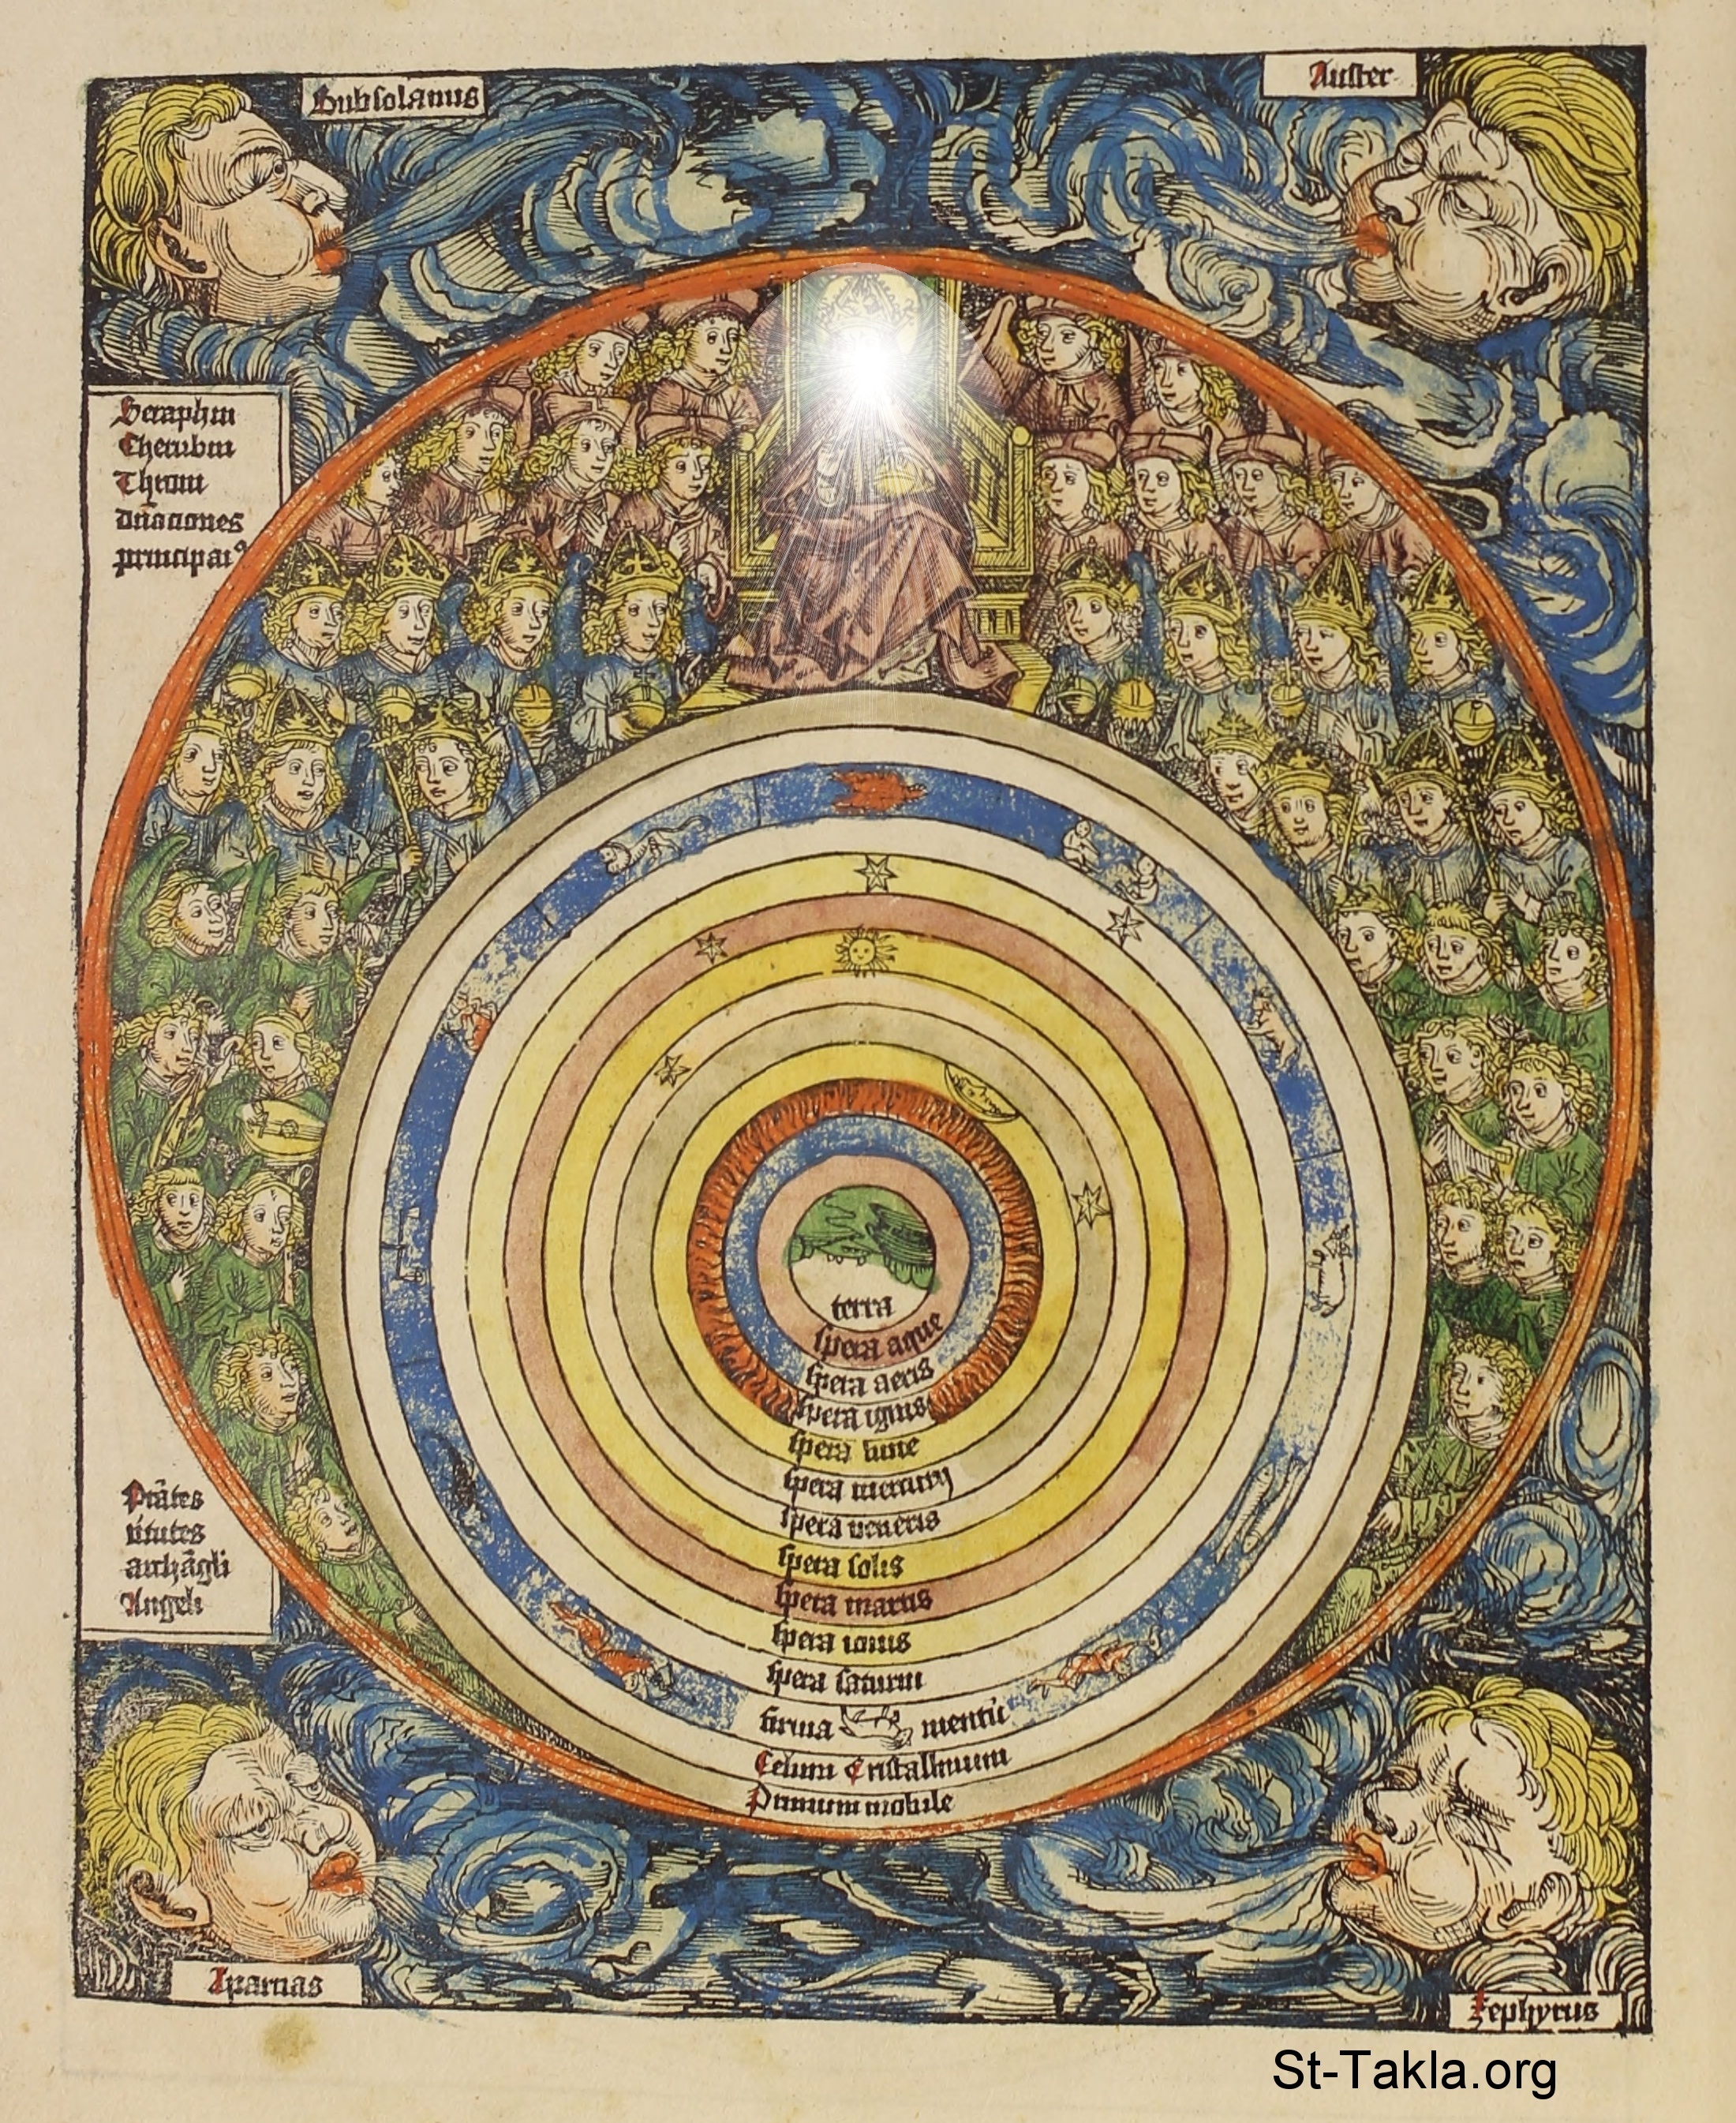 Subsolanus
Auster
Seraphin
Cherubin
Throni
dnāciones
principat⁹
terra
spera aque
spera aeris
spera ignis
spera lune
spera mercurij
spera veneris
spera solis
spera martis
spera iouis
spera saturni
firma mentū
Celum Cristallinum
Primum mobile
Ptātes
v̄tutes
archāgeli
Angeli
Aparcias
Zephyrus
St-Takla.org